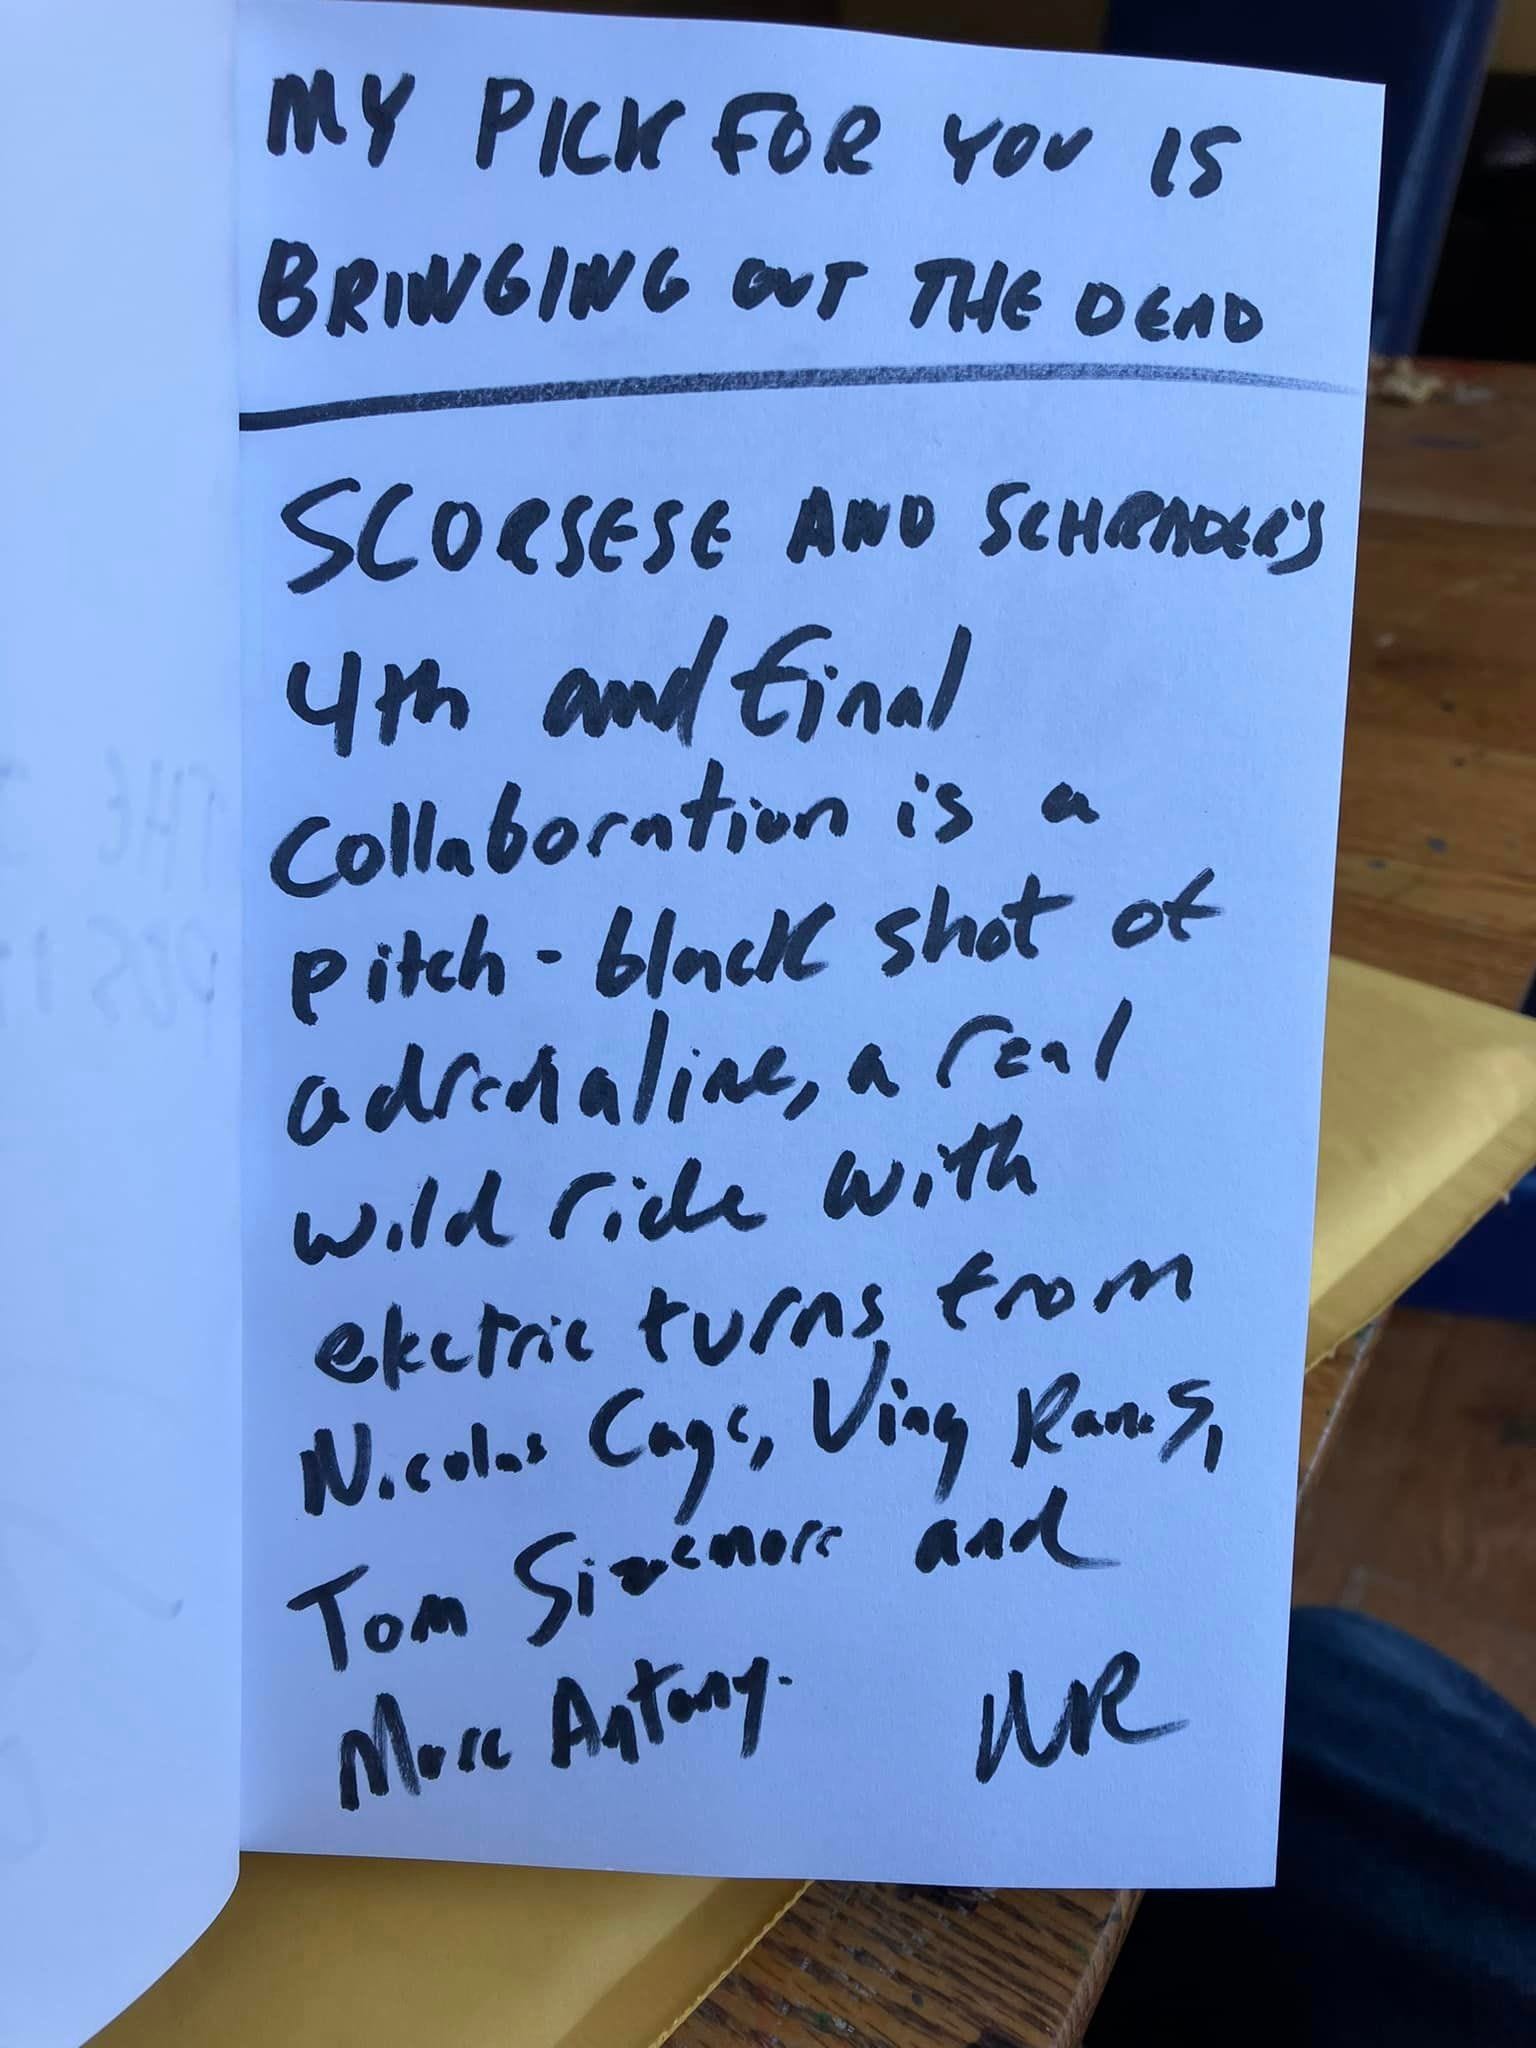 MY PICK FOR YOU IS
BRINGING OUT THE DEAD
SCORSESE AND SCHRADER'S
4th and final
collaboration is a
pitch-black shot of
adrenaline, a real
wild ride with
electric turns from
Nicolas Cage, Ving Rames,
Tom Sizemore and
Marc Antony. NR